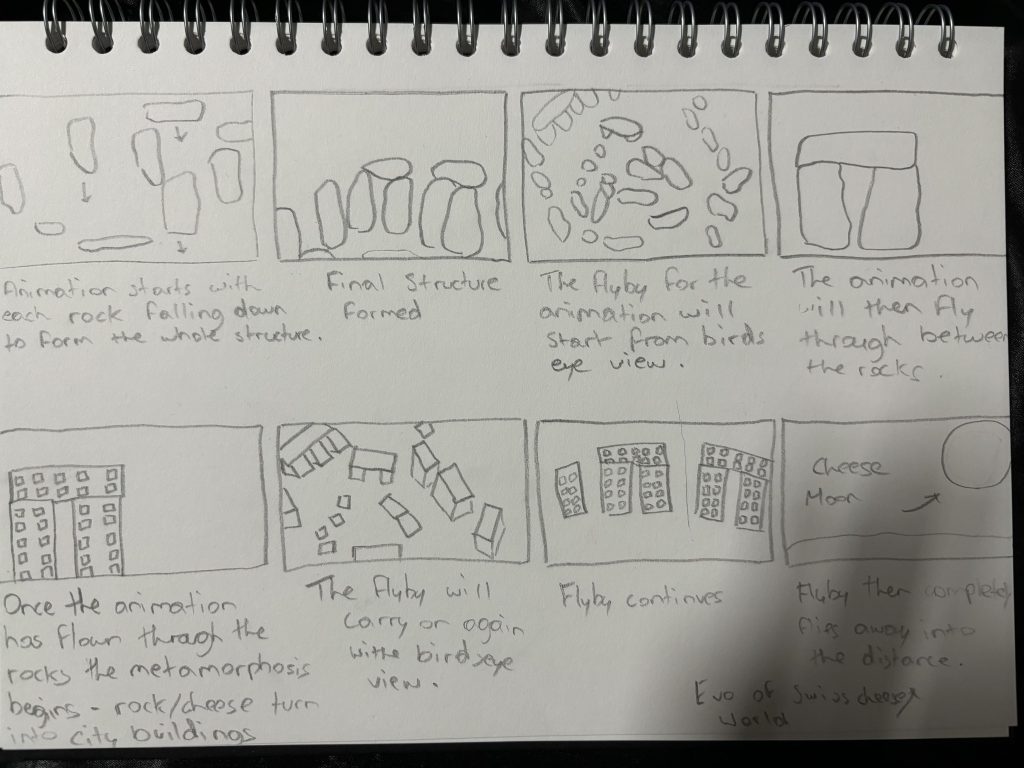 Animation starts with
each rock falling down
to form the whole structure.
Final Structure
formed
The flyby for the
animation will
start from birds
eye view.
The animation
will then fly
through between
the rocks.
Cheese
Moon
Once the animation
has flown through the
rocks the metamorphosis
begins - rock/cheese turn
into city buildings
The flyby will
carry on again
withe birdseye
view.
Flyby continues
Flyby then completly
flies away into
the distance.
Evo of Swisscheese
World